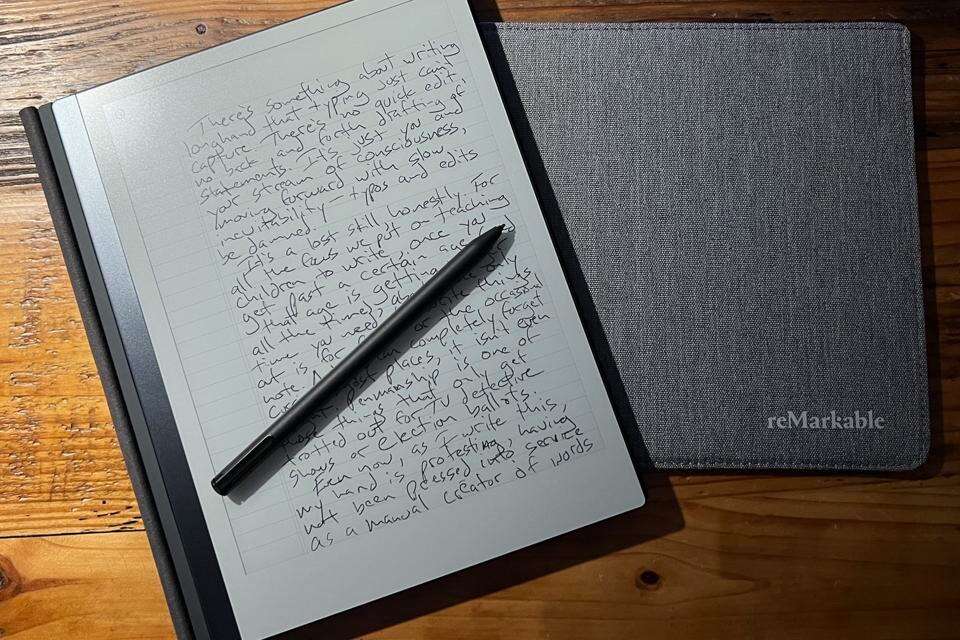 There's something about writing
longhand that typing just can't
capture. There's no quick edit,
no back and forth drafting of
statements. It's just you and
your stream of consciousness,
moving forward with slow
inevitability — typos and edits
be damned.
It's a lost still, honestly. For
all the focus we put on teaching
children to write, once you
get past a certain age
that age is getting
all the time), about only
time you need write things
out is for or the occasional
note. A can completely forget
most places, it isn't even
Penmanship is one of
those things that only get
trotted out for TV detective
shows or election ballots.
Even now, as I write this,
my hand is protesting, having
not been pressed into service
as a manual creator of words
reMarkable